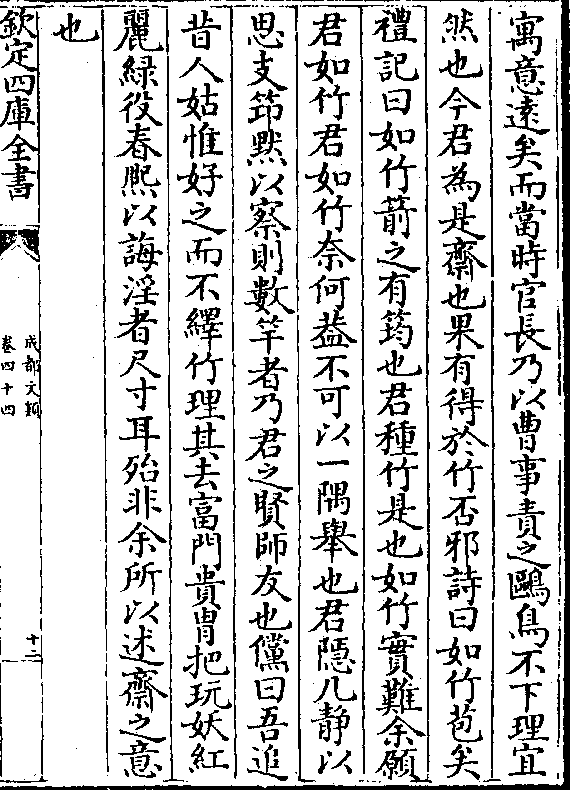 寓意逺矣而當時官長乃以曹事責之鷗鳥不下理宜
然也今君為是齋也果有得於竹否邪詩曰如竹苞矣
禮記曰如竹箭之有筠也君種竹是也如竹實難余願
君如竹君如竹奈何葢不可以一隅舉也君隠几静以
思支笻黙以察則數竿者乃君之賢師友也儻曰吾追
昔人姑惟好之而不繹竹理其去富門貴胄把玩妖紅
麗緑役春熈以誨淫者尺寸耳殆非余所以述齋之意
也
欽定四庫全書
成都文類
卷四十四
十二